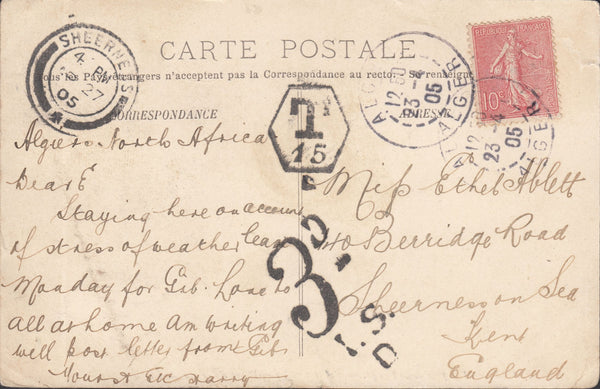 CARTE POSTALE
Tous les Pays étrangers n'acceptent pas la Correspondance au recto. Se renseigner
CORRESPONDANCE
ADRESSE
SHEERNESS
4 PM
27
05
T
15
3D.
D.S.
10c
ALGER ALGER
12 30
23 -4
05
ALGER ALGER
12 30
23 -4
05
Algiers North Africa
Dear E
Staying here on account
of stress of weather leave
Monday for Gib. Love to
all at home Am writing
will post letter from Gib
Yours Etc Harry
Miss Ethel Ablett
40 Berridge Road
Sheerness on Sea
Kent
England